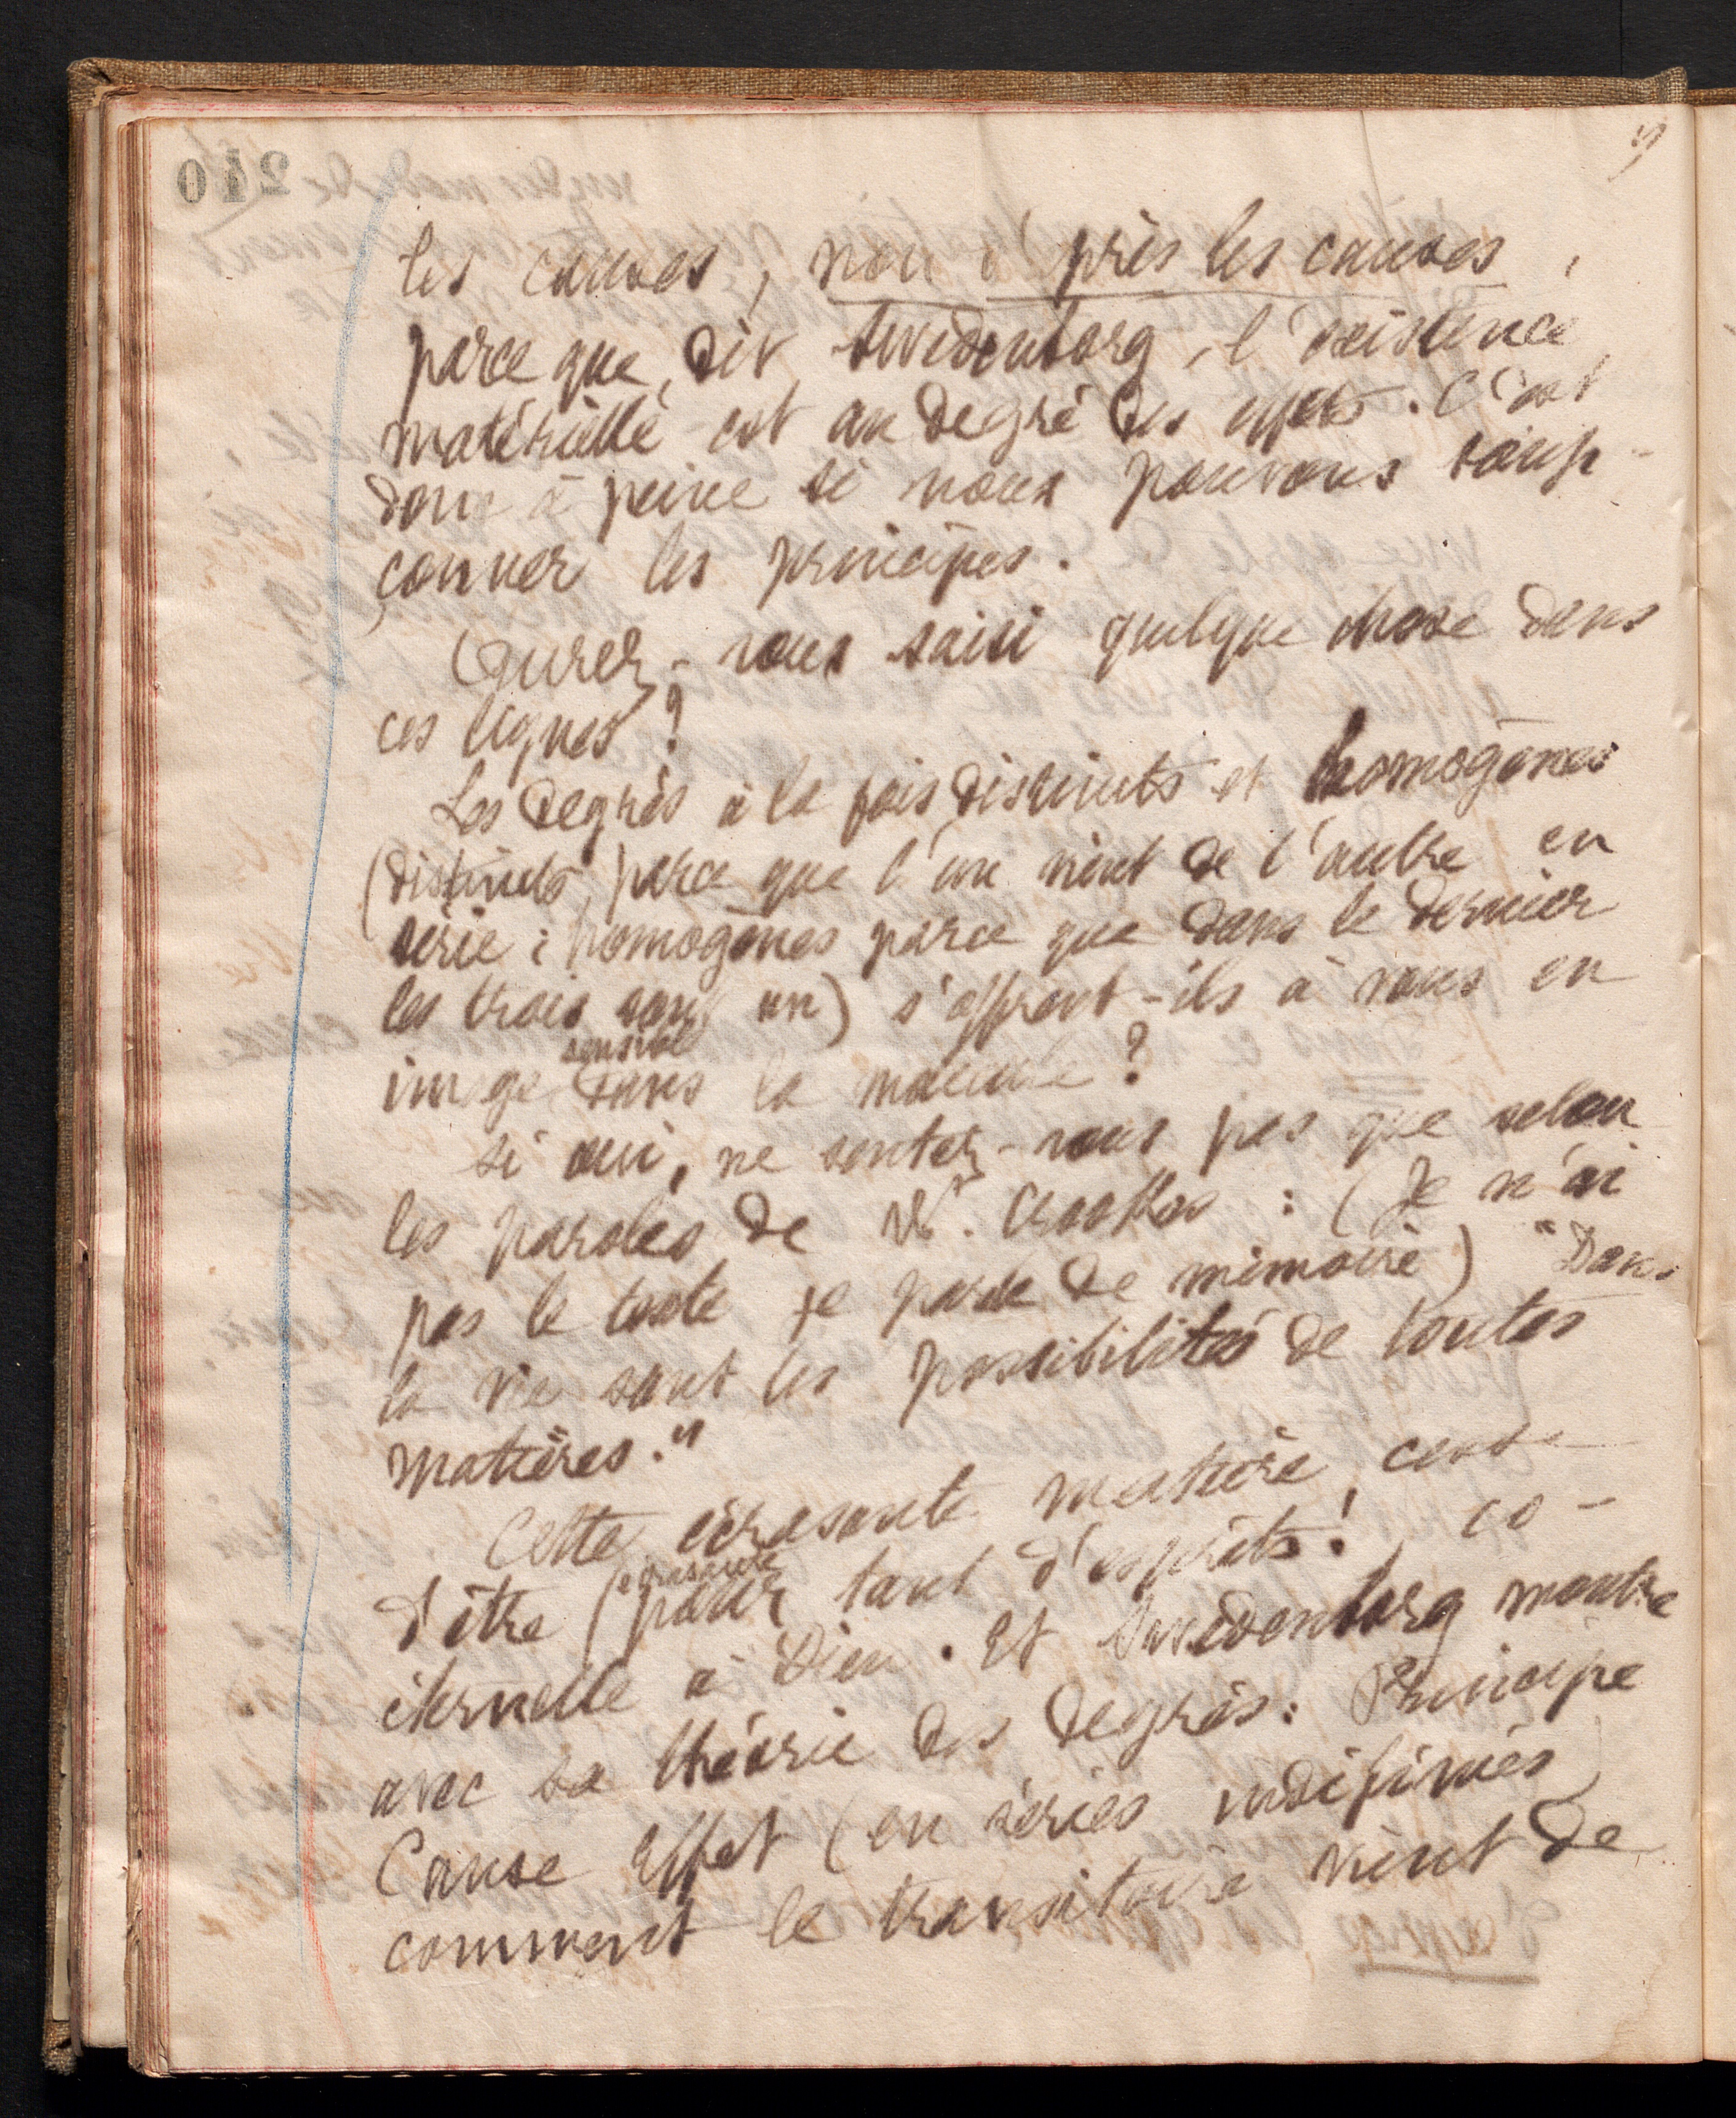 les causes, non d'près les causes,
parce que, dit Swedenborg, l'existence
matérielle est au degré des effets. C'est
donc à peine si nous pouvons soup-
çonner les principes.
Aurez-vous saisi quelque chose dans
ces lignes?
Les degrés à la fois distincts et homogènes
(distincts parce que l'un vient de l'autre en
série: homogènes parce que dans le dernier
les trois sont un) s'offrent-ils à vous en
sensible
image dans la matière?
si oui, ne sentez-vous pas que selon
les paroles de W. Crookes: (Je n'ai
pas le texte je parle de mémoire) "Dans
la vie sont les possibilités de toutes
matières."
Cette écrasante matière, cesse
écrasante
d'être pour tant d'esprits! co-
éternelle à Dieu. Et Swedenborg montre
avec sa théorie des degrés: Principe
Cause Effet (en séries indéfinies)
comment le transitoire vient de